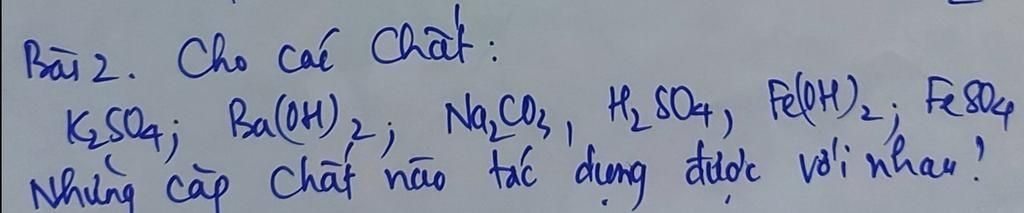 Bài 2. Cho các Chất:
K₂SO₄; Ba(OH)₂; Na₂CO₃, H₂SO₄, Fe(OH)₂; FeSO₄
Những cặp Chất nào tác dụng được với nhau?